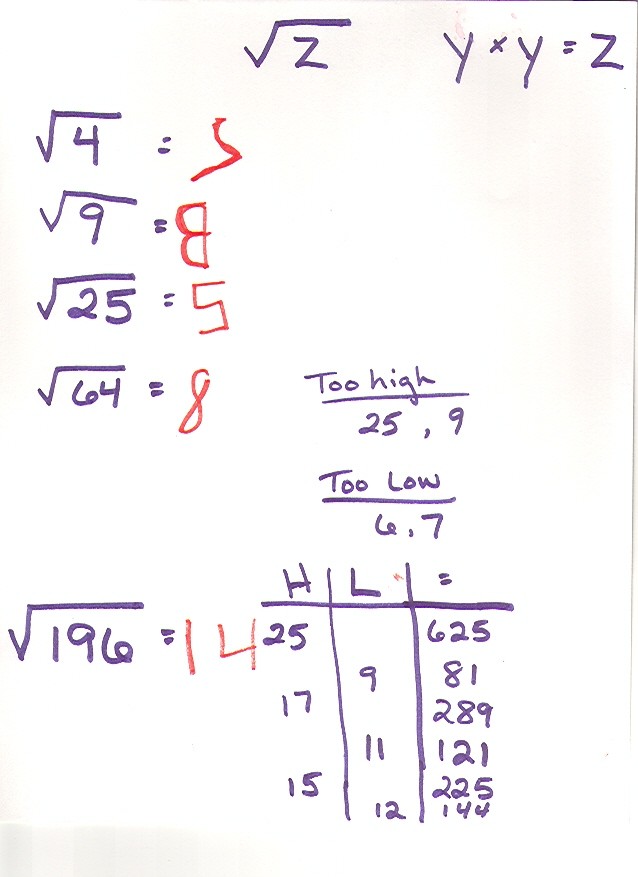 √z   y × y = z
√4 = 2
√9 =
√25 = 5
√64 = 8
Too high
25, 9
Too Low
6, 7
H | L | =
√196 = 14
25 | | 625
| 9 | 81
17 | | 289
| 11 | 121
15 | | 225
| 12 | 144